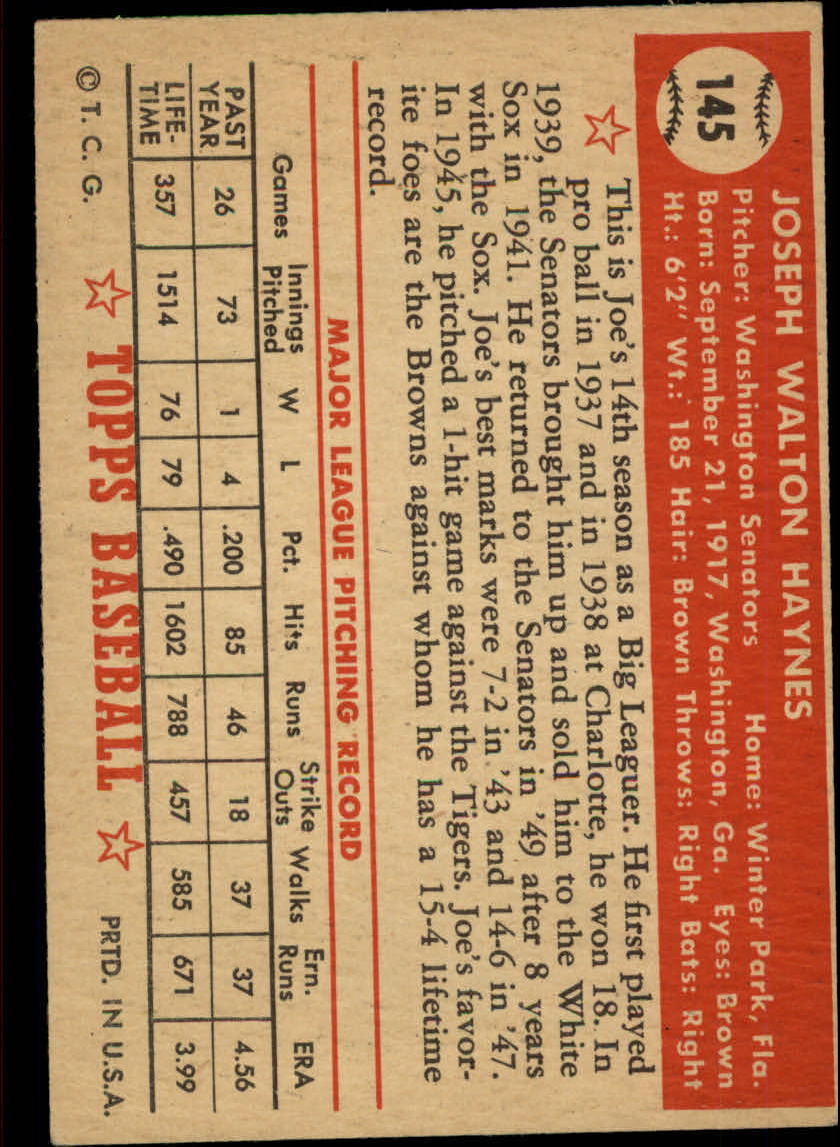 145
JOSEPH WALTON HAYNES
Pitcher: Washington Senators Home: Winter Park, Fla.
Born: September 21, 1917, Washington, Ga. Eyes: Brown
Ht.: 6'2" Wt.: 185 Hair: Brown Throws: Right Bats: Right
This is Joe's 14th season as a Big Leaguer. He first played
pro ball in 1937 and in 1938 at Charlotte, he won 18. In
1939, the Senators brought him up and sold him to the White
Sox in 1941. He returned to the Senators in '49 after 8 years
with the Sox. Joe's best marks were 7-2 in '43 and 14-6 in '47.
In 1945, he pitched a 1-hit game against the Tigers. Joe's favor-
ite foes are the Browns against whom he has a 15-4 lifetime
record.
MAJOR LEAGUE PITCHING RECORD
Games Innings Pitched W L Pct. Hits Runs Strike Outs Walks Ern. Runs ERA
PAST YEAR 26 73 1 4 .200 85 46 18 37 37 4.56
LIFE-TIME 357 1514 76 79 .490 1602 788 457 585 671 3.99
© T. C. G. TOPPS BASEBALL PRTD. IN U.S.A.